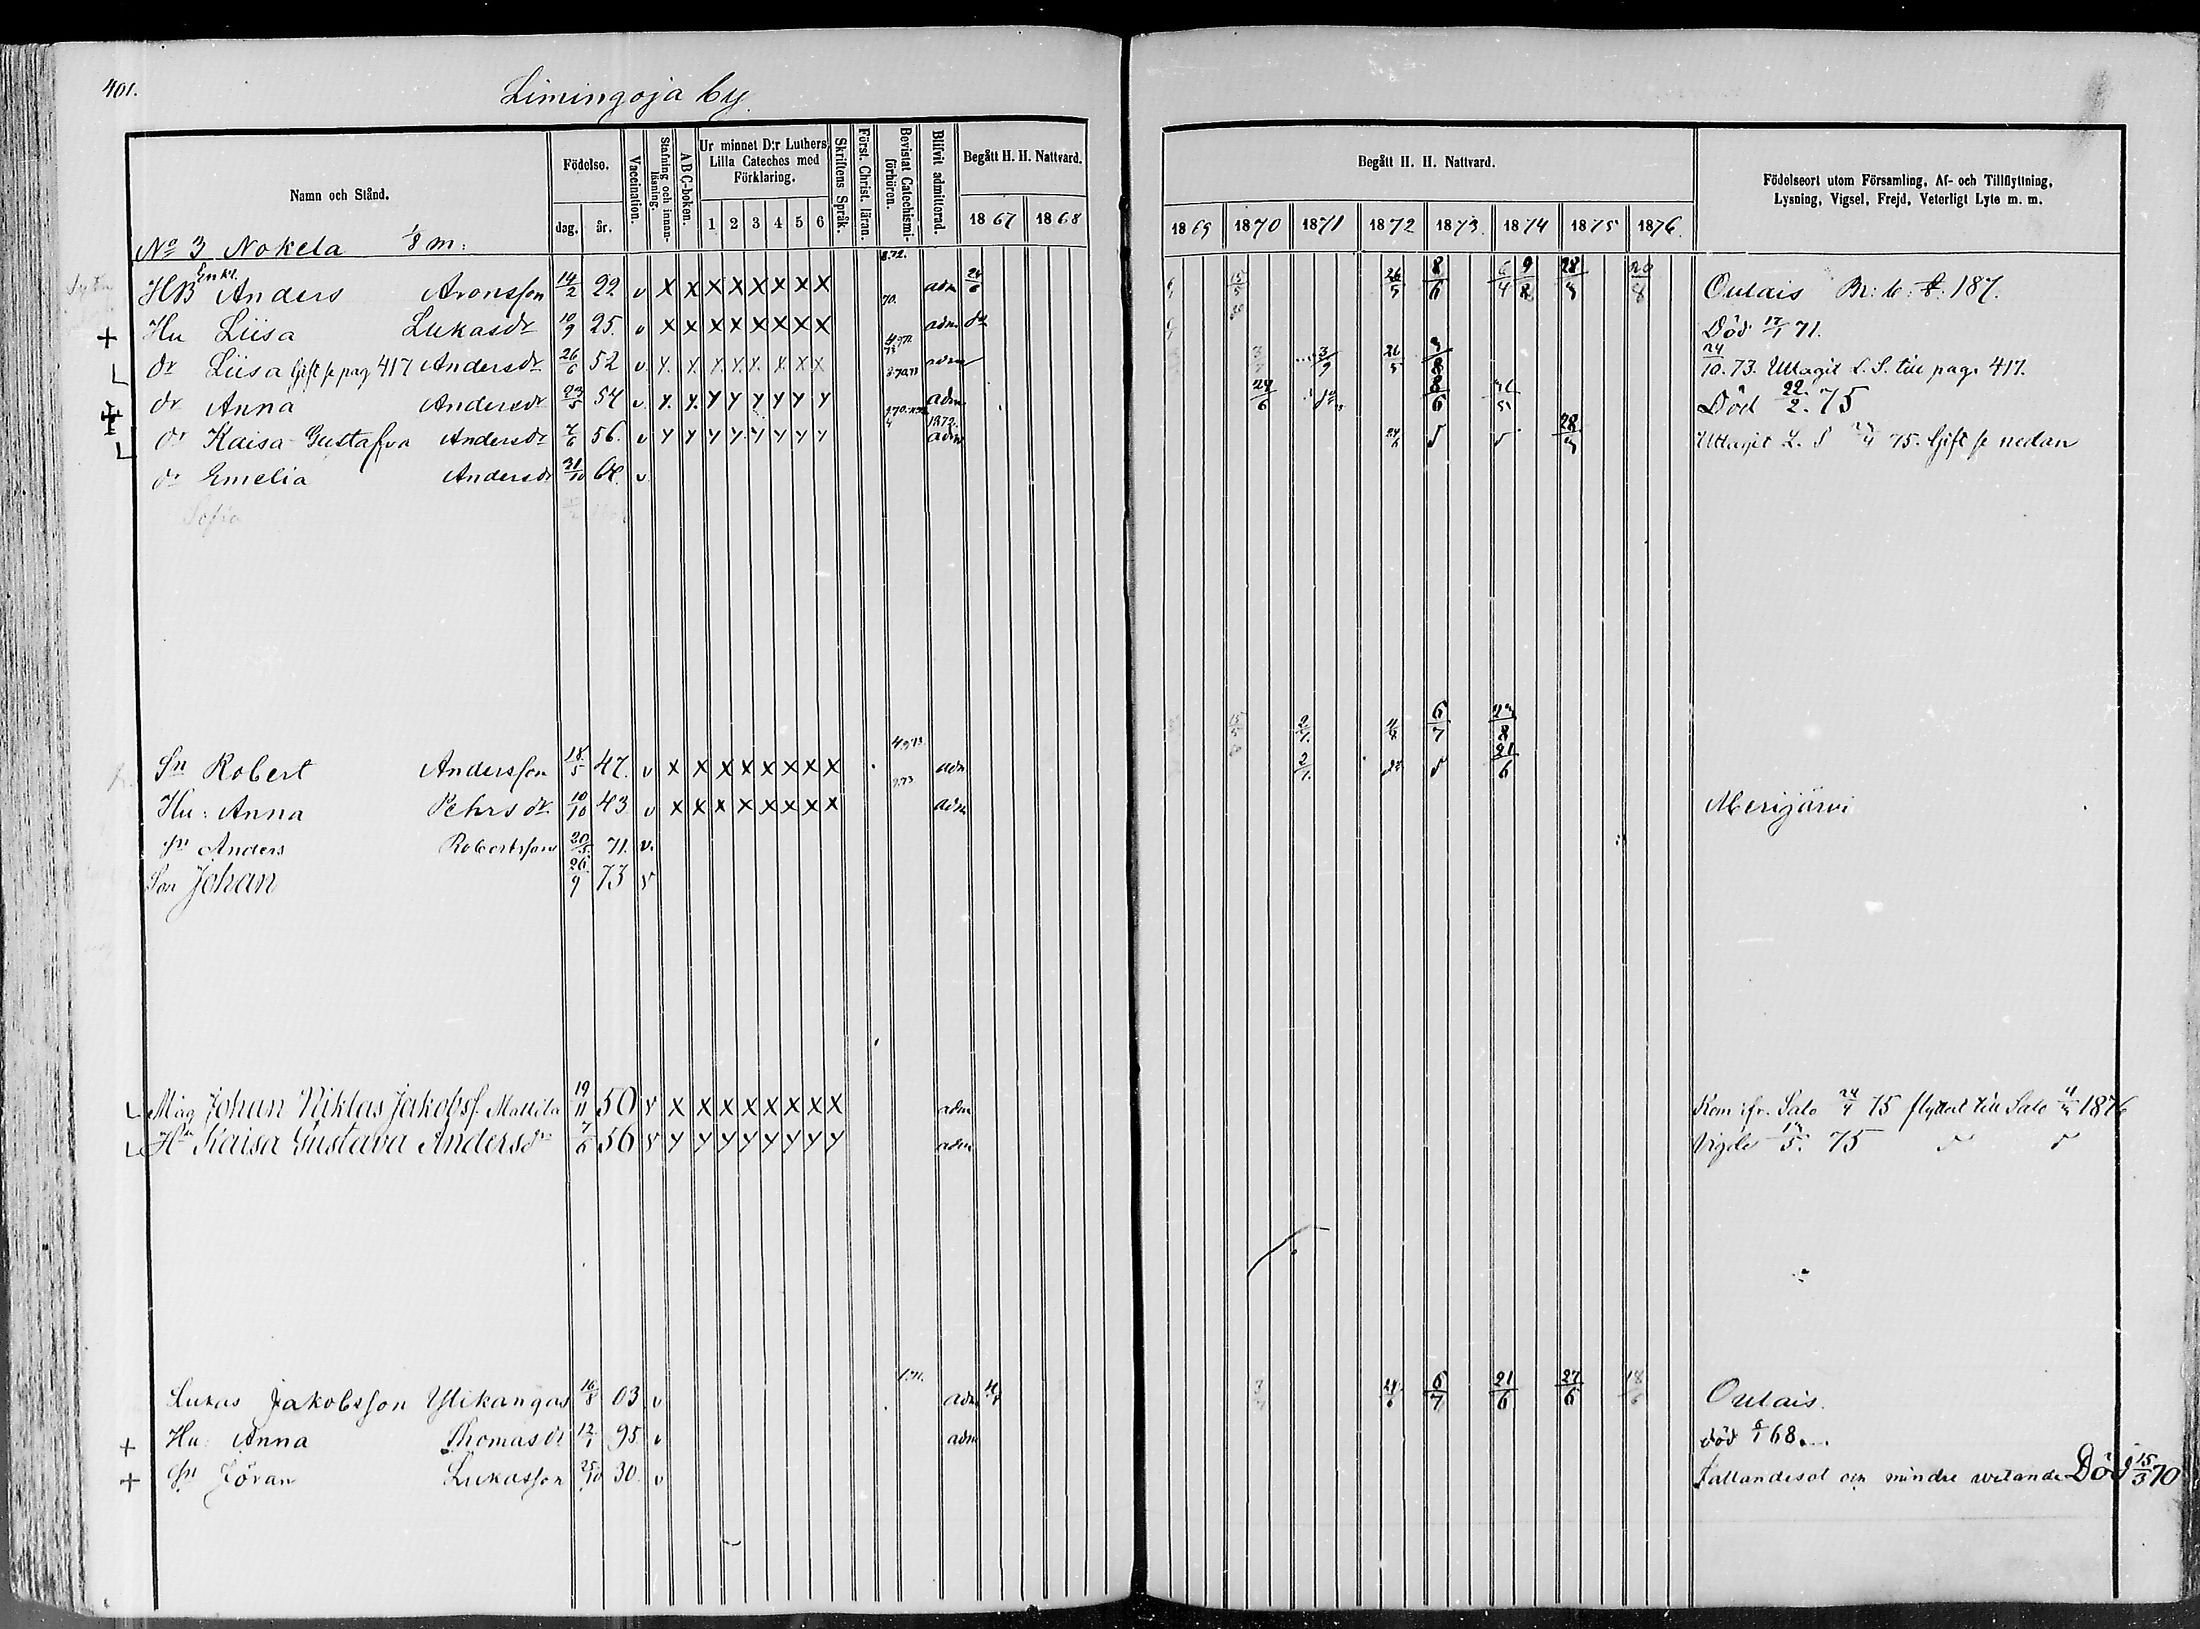 401.
Limingoja by
Namn och Stånd.
Födelse.
dag. år.
Vaccination.
Stafning och innanläsning.
ABC-boken.
Ur minnet D:r Luthers Lilla Cateches med Förklaring.
1 2 3 4 5 6
Skriftens Språk.
Först. Christ. läran.
Bevistat Catechismiförhören.
Blifvit admitterad.
Begått H. H. Nattvard.
1867 1868
Begått H. H. Nattvard.
1869 1870 1871 1872 1873 1874 1875 1876
Födelseort utom Församling, Af- och Tillflyttning,
Lysning, Vigsel, Frejd, Veterligt Lyte m. m.
No 3 Nokela 1/8 m:
Enkl.
HB Anders Aronsson 14/2 22 v X X X X X X X X adm 24/6 15/5 26/5 8/6 Oulais
+ Hu Liisa Lukasdr 10/9 25. v X X X X X X X X adm do Död 17/1 71.
dr Liisa Gift se pag 417 Andersdr 26/6 52 v adm 3/9 26/5 24/10. 73. Uttagit L. S. till pag. 417.
+ dr Anna Andersdr 23/5 54 v. adm 24/6 8/6 Död 22/2. 75
dr Kaisa Gustafva Andersdr 7/6 56. v 1872. adm Uttagit L. S 75. Gift se nedan
dr Emelia Andersdr 31/10 v
Sofia
Sn Robert Andersson 18/5 47. v X X X X X X X X adm 15/5 2/7. 6/7
Hu: Anna Pehrsdr 10/10 43 v X X X X X X X X adm 21/6 Merijärvi
sn Anders Robertsson 20/5 71. v.
Son Johan 26/9 73 v
Måg Johan Niklas Jakobsf. Mattila 19/11 50 v X X X X X X X X adm Kom: fr. Salo 24/4 75 flyttat till Salo 1876
Hu Kaisa Gustava Andersdr 7/6 56 v adm Vigde 75
Lukas Jakobsson Ylikangas 16/8 03 v adm 6/7 21/6 27/6 18/6 Oulais.
+ Hu: Anna Thomasdr 12/1 95 v adm död 68.
+ Sn Jöran Lukasson 25/10 30. v Fallandesot och mindre vetande Död 15/3 70